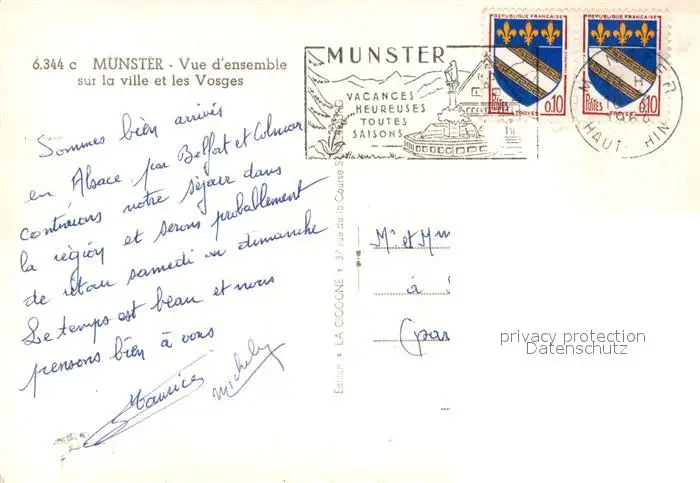 6.344 c MUNSTER - Vue d'ensemble
sur la ville et les Vosges
Sommes bien arrivés
en Alsace par Belfort et Colmar
continuons notre séjour dans
la région et serons probablement
de retour samedi ou dimanche
Le temps est beau et nous
pensons bien à vous
Maurice
Michely
MUNSTER
VACANCES
HEUREUSES
TOUTES
SAISONS
REPUBLIQUE FRANÇAISE
POSTES
0,10
TROYES
REPUBLIQUE FRANÇAISE
POSTES
0,10
TROYES
HAUT-RHIN
Edition LA CIGOGNE 37 rue de la Course S
Mr et Mm
à
(par
privacy protection
Datenschutz